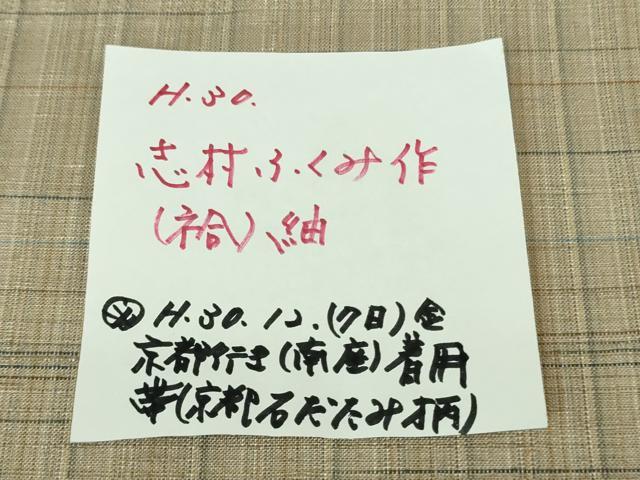 H.30.
志村ふくみ作
(袷)紬
H.30.12.(7日)金
京都行き(南座)着用
帯(京都石だたみ柄)